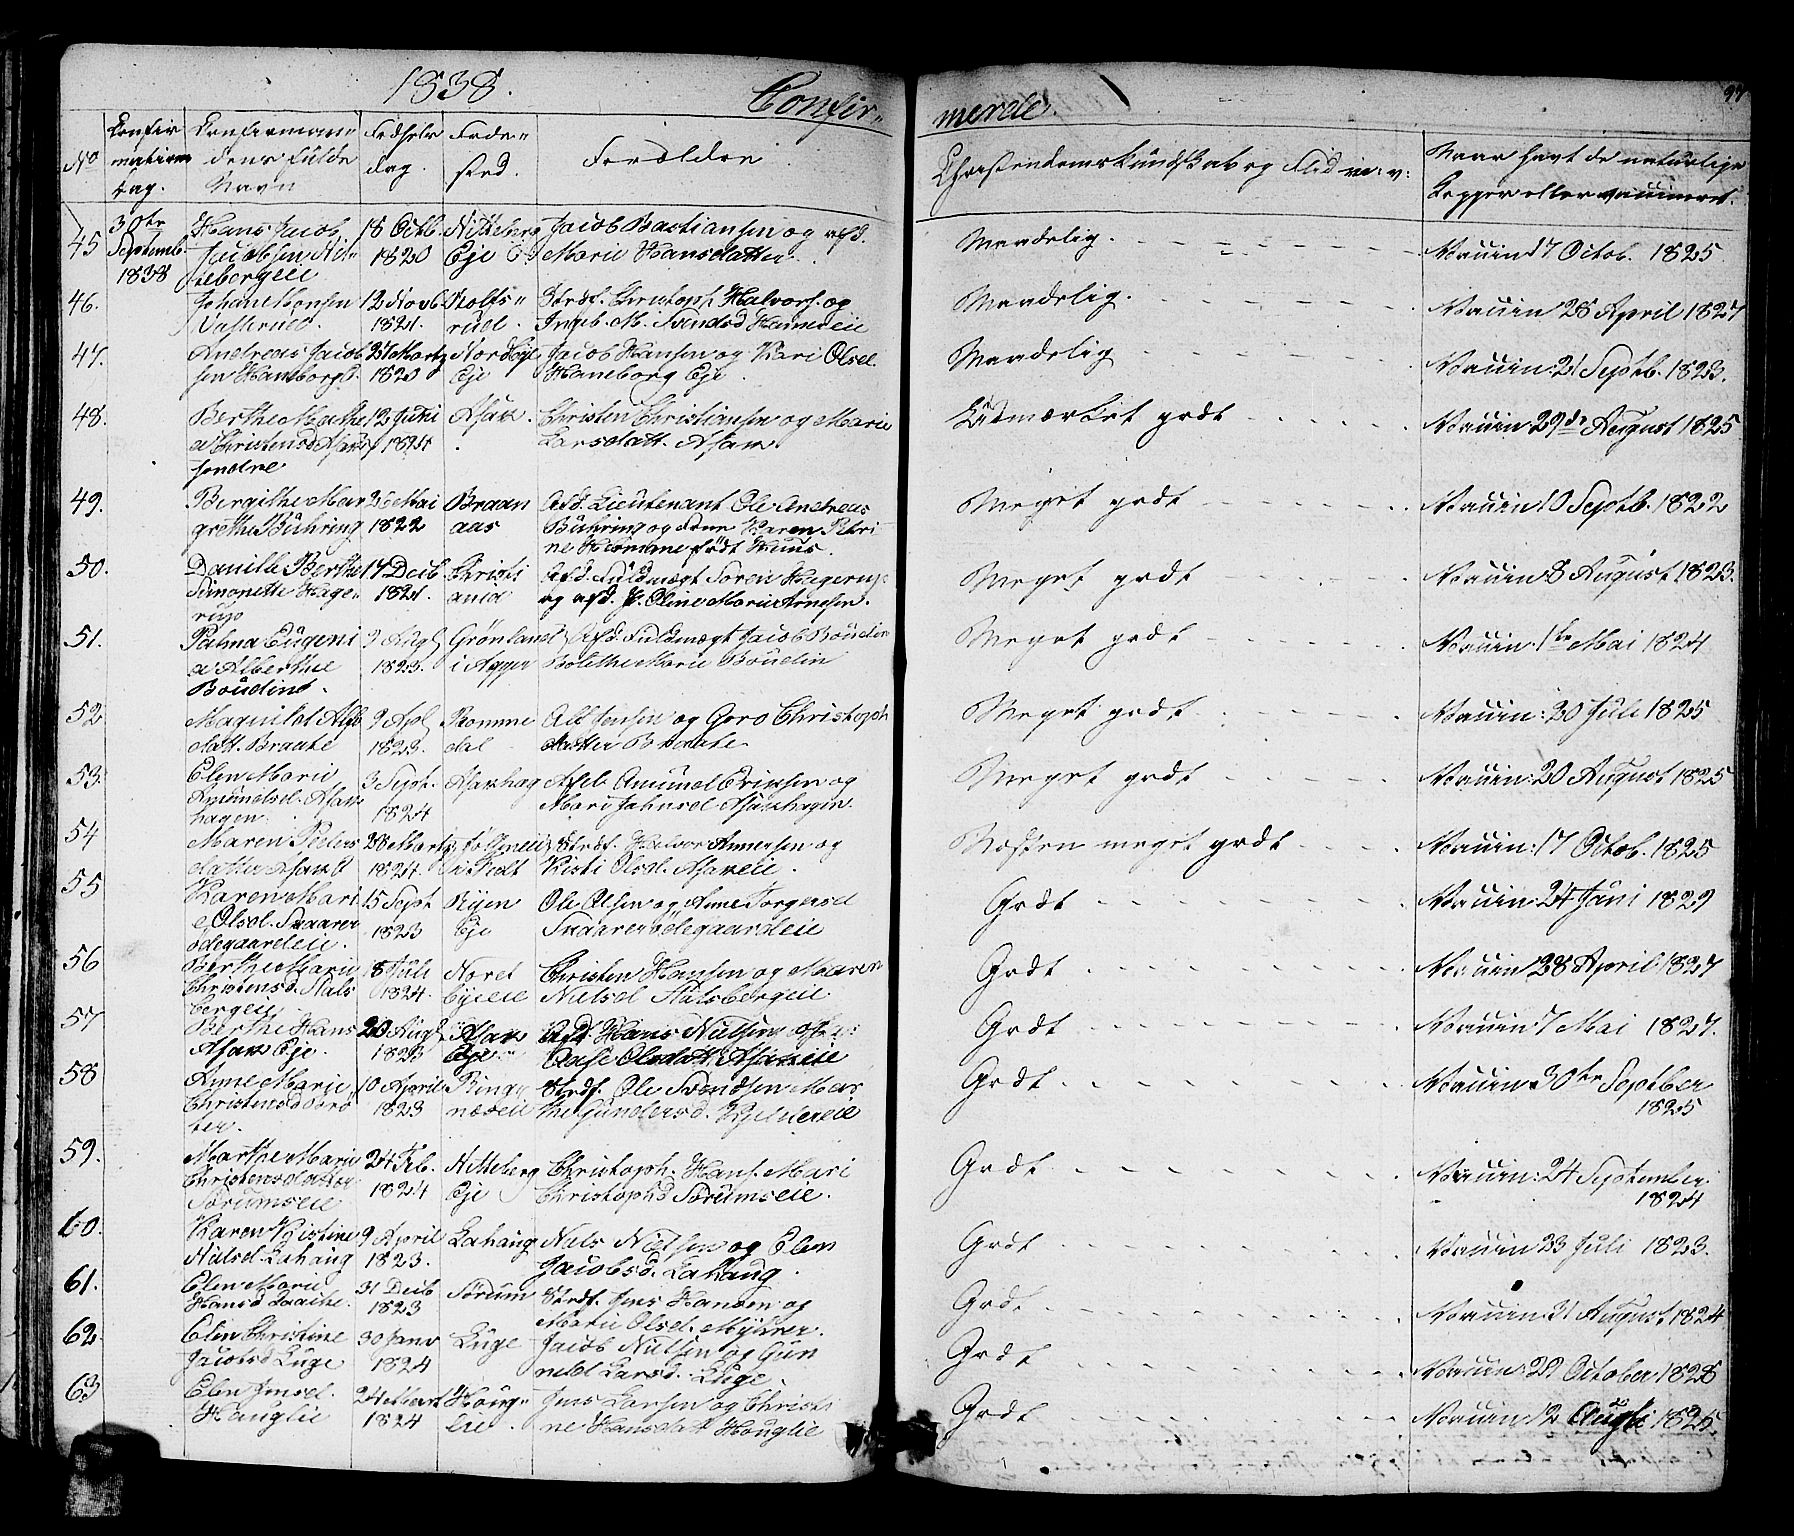 1838.
Confir-
merede.
97
No
Confir
mations
Dag.
Confirman-
dens fulde
Navn
Fødsels
dag.
Føde-
sted.
Forældre
Christendomskundskab og Flid m: v:
Naar havt de naturlige
Kopper eller vaccineret.
45
30te
Septemb.
1838
Hans Jacob
Jacobsen Hit-
tebergeie
18 Octb.
1820
Hitteberg
Eje
Jacob Bastiansen og afd.
Marie Hansdatter
Maadelig.
Vaccin 17 Octob. 1825
46.
Johan Monsen
12 Novb.
1821.
Holts-
rud.
Strdf. Christoph. Halvors. og
Ingeb. M. Svendsd
Maadelig.
Vaccin 28 April 1827
47.
Andreas Jacob
sen Haneborgd.
27 Martz
1820
Nordbye
Eje
Jacob Hansen og Kari Olsd.
Haneborg Eje.
Maadelig
Vaccin: 21 Septb. 1823.
48.
Berthe Mathe
a Christensd Asak
søndre
12 Juni
1824
Asak.
Christen Christiansen og Marie
Larsdatt. Asak.
Udmærket godt
Vaccin 29de August 1825
49.
Bergithe Mar
grethe Bühring
26 Mai
1822
Braan
aas
Afd. Lieutenant Ole Andreas
Bühring og Frue Karen Petri
ne Hromme født Huus.
Meget godt
Vaccin 10 Septb. 1822
50.
Danille Berthe
Simonette Hage-
rup
17 Decb
1821.
Christi
ania
Afd. Fuldmægt Søren Hagerup
og afd. Fr. Oline Marie Arnesen.
Meget godt
Vaccin: 8 August 1823.
51.
Palma Eugeni
a Alberthe
Boudins.
9 Aug
1823.
Grønland
i Agger
Afd. Fuldmægt Jacob Boudin
Bolethe Marie Boudin
Meget godt
Vaccin: 1te Mai 1824
52
Magnild Alfs
datt. Braate
9 Apl
1823.
Romme
dal
Alf Jensen og Goro Christoph
datter Braate
Meget godt
Vaccin: 20 Juli 1825
53.
Elen Marie
Amundsd. Asak
hagen
3 Sept.
1824
Asakhag
Afd. Amund Eriksen og
Mari Jahnsd Asakhagen
Meget godt
Vaccin: 20 August 1825
54
Maren Peders
datter Asak
28 Martz
1824.
Strdf. Halvor Annersen og
Kisti Olsd. Asakeie.
Næsten meget godt
Vaccin: 17 Octob. 1825
55
Karen Mari
e Olsd. Svaarer
ødegaardeie.
15 Sept
1823
Ryen
Eje
Ole Olsen og Anne Torgersd
Svaarerødegaardeie
Godt
Vaccin: 24 Juni 1829
56
Berthe Marie
Christensd. Stals
bergeie
18 Juli
1824.
Nord
byeeie
Christen Hansen og Maren
Nielsd Stalsbergeie
Godt
Vaccin 28 April 1827
57
Berthe Hans
Asak Eje.
20 Aug
1823
Asak
Eje
Afd. Hans Nielsen og
Aase Olsdatt. Asakeie
Godt
Vaccin 7 Mai 1827.
58
Anne Marie
Christensd
ter.
10 April
1823
Ring
næseie
Strdf. Ole Svendsen Mar
the Gundersd.
Godt
Vaccin 30te September
1825
59.
Marthe Marie
Christensdatter
Sørumseie
24 Feb.
1824
Hitteberg
Eje
Christoph. Hans. Mari
Christophd Sørumseie.
Godt
Vaccin: 24 September
1824
60.
Karen Kistine
Nielsd. Lahaug
9 April
1823.
Lahaug
Niels Nielsen og Elen
Jacobsd. Lahaug.
Godt
Vaccin 23 Juli 1823.
61.
Elen Marie
Hansd Braathe.
31 Decb
1823
Sørum
Strdf. Jens Hansen og
Marie Olsd. Myhrer.
Godt
Vaccin: 31 August 1824
62
Elen Christine
Jacobsd Luge
30 Janv
1824
Luge
Jacob Nielsen og Gun
nild Larsd. Luge.
Godt
Vaccin: 29 October 1828
63
Elen Jensd.
Hauglie
24 Mart
1824
Haug-
lie.
Jens Larsen og Christi
ne Hansdatt Houglie
Godt
Vaccin: 12 Augti 1825.